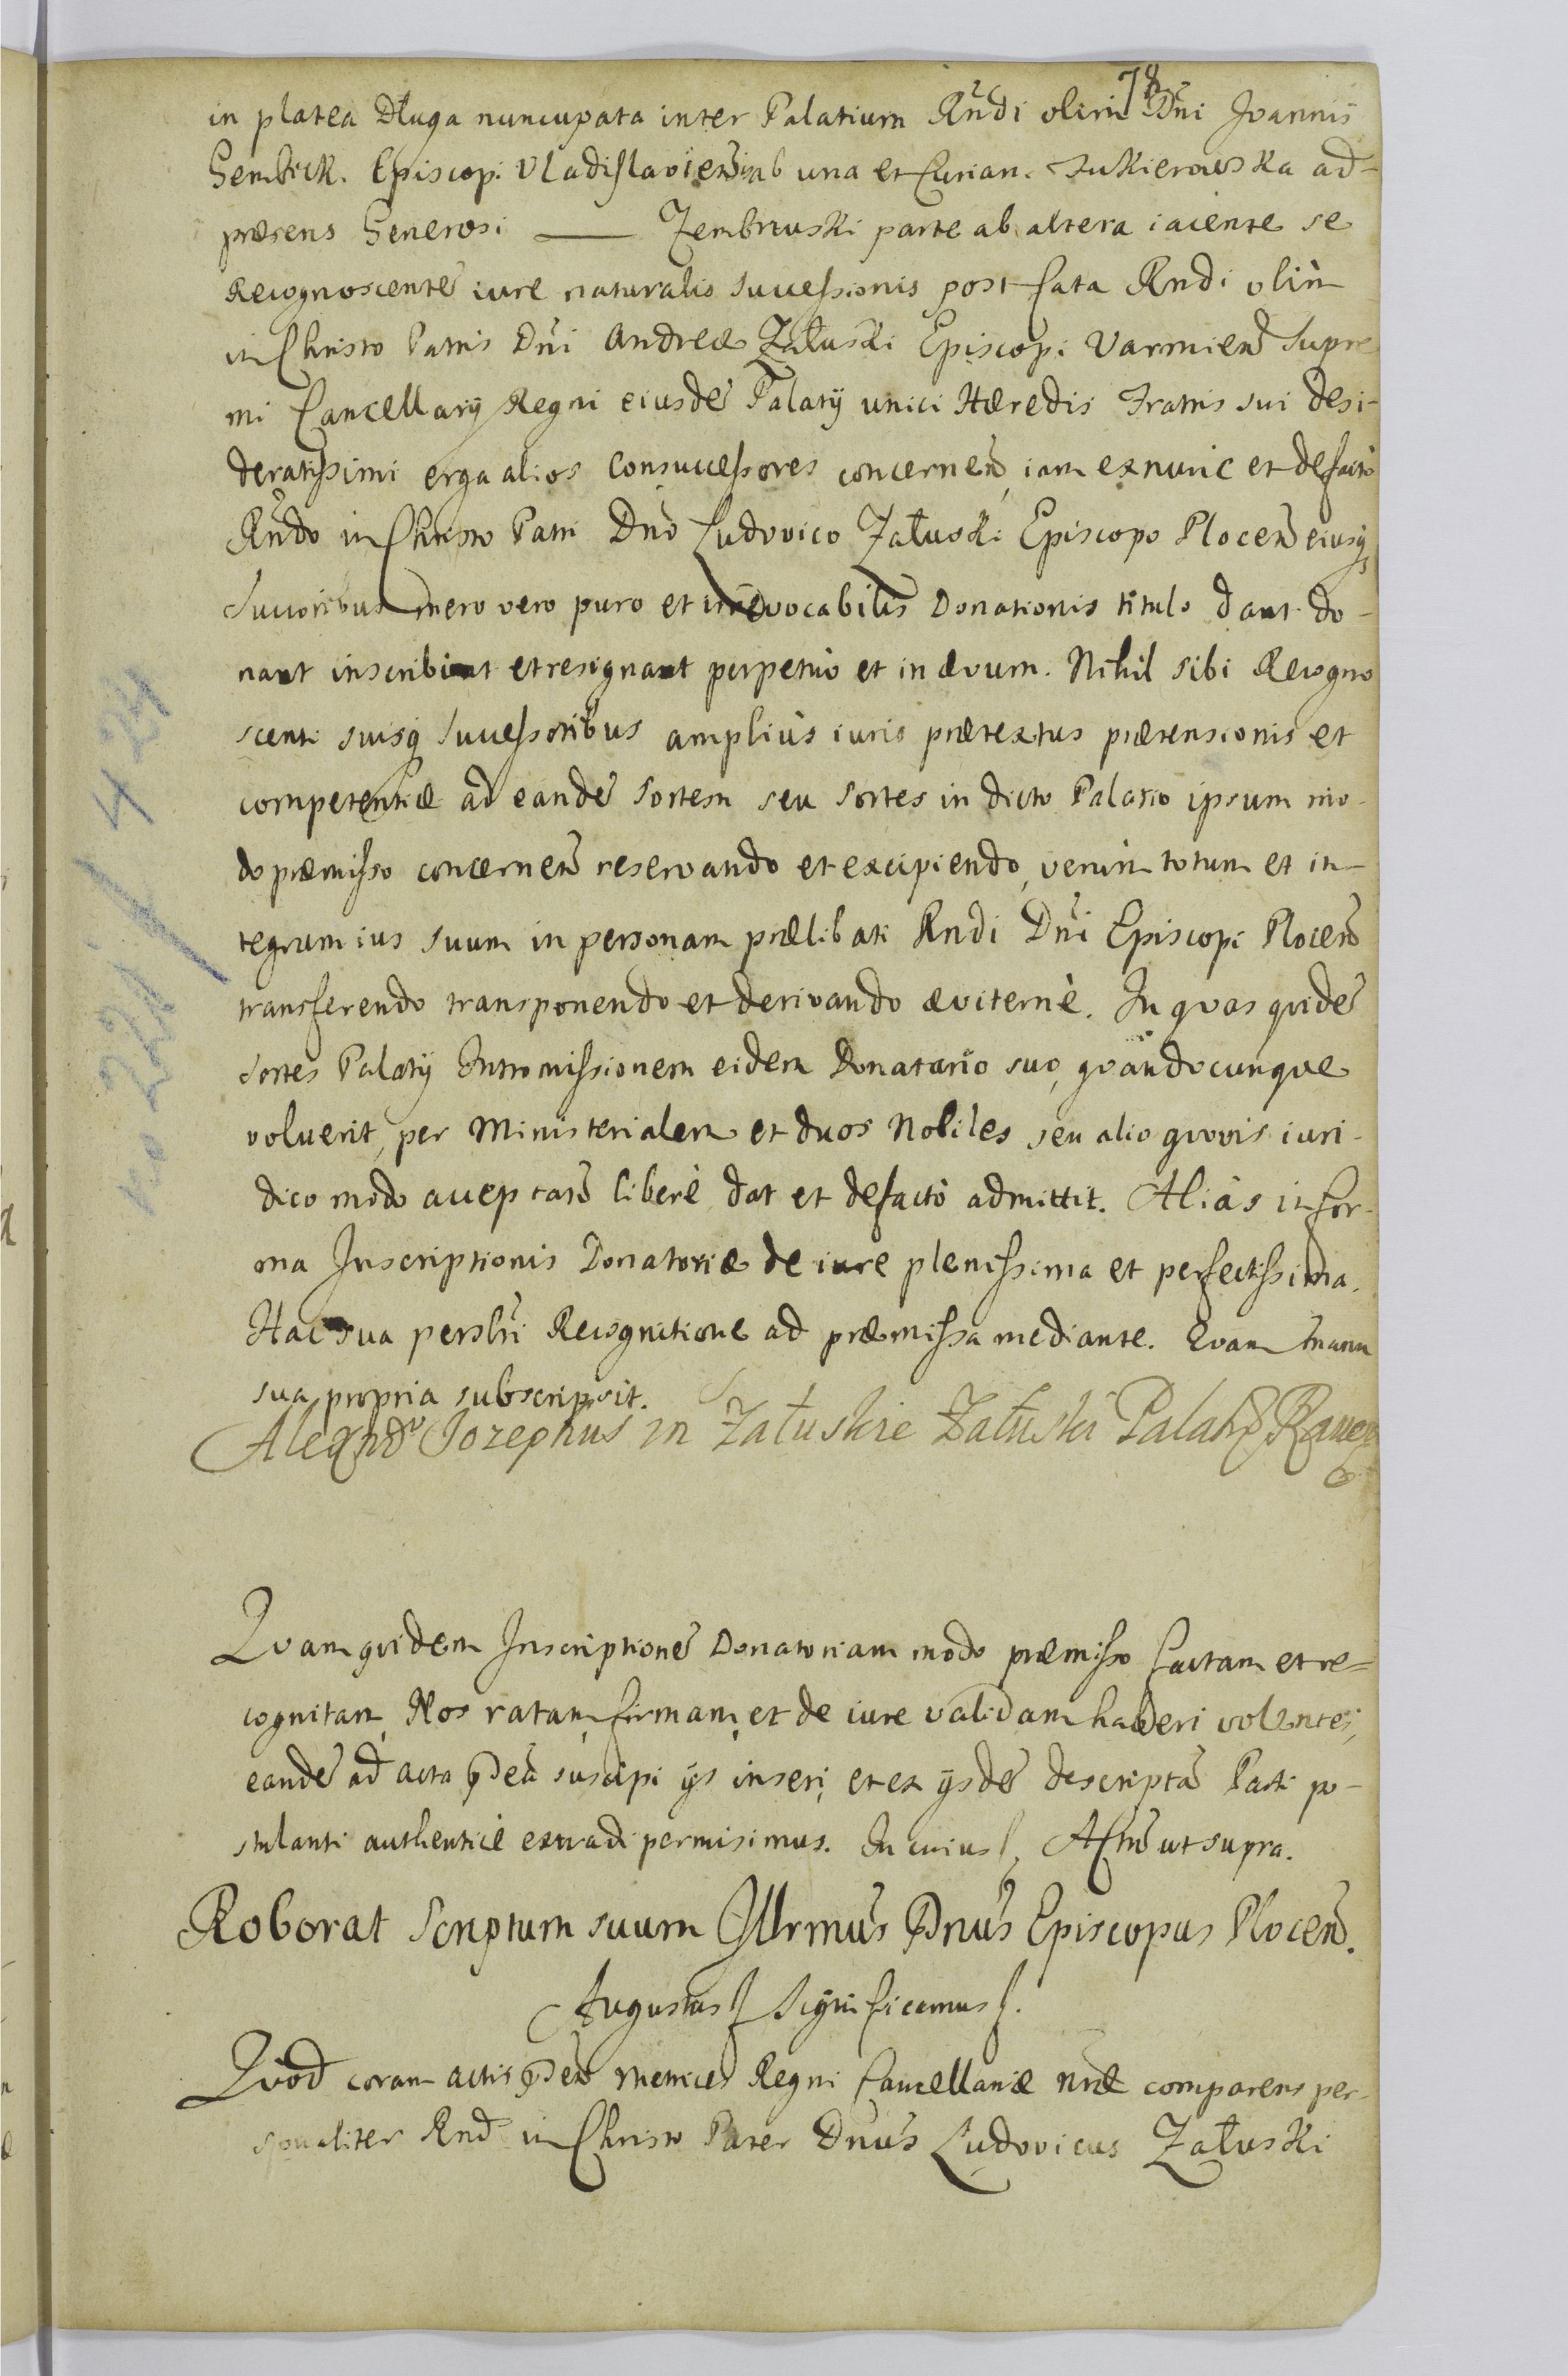 78
in platea Długa nuncupata inter Palatium Rndi olim Dni Joannis
Sembeck. Episcopi Vladislavien ab una et Curiam Zukierowska ad-
præsens Generosi —— Zembrzuski parte ab altera iacente se
Recognoscente iure naturalis successionis post fata Rndi olim
in Christo Patris Dni Andreæ Załuski Episcopi Varmien Supre
mi Cancellarij Regni eiusde Palatij unici Hæredis Fratris sui desi-
deratissimi erga alios Consuccessores concernen, iam exnunc et defacto
Rndo in Christo Patri Dno Ludovico Załuski Episcopo Plocen eiusq
Succoribus mero vero puro et irrevocabilis Donationis titulo dant do-
nant inscribunt et resignant perpetuo et in ævum. Nihil sibi Recogno
scenti suisq Successoribus amplius iuris prætextus prætensionis et
competentiæ ad eande sortem seu sortes in dicto Palatio ipsum mo-
do præmisso concernen reservando et excipiendo, verum totum et in-
tegrum ius suum in personam prælibati Rndi Dni Episcopi Plocen
transferendo transponendo et derivando æviternè. In quas quide
sortes Palatij Intromissionem eidem Donatario suo, quandocunque
voluerit, per Ministerialem et duos Nobiles seu alio quovis iuri-
dico modo acceptan liberè dat et defactò admittit. Aliàs in for-
ma Inscriptionis Donatoriæ de iure plenissima et perfectissima.
Hac sua personli Recognitione ad præmissa mediante. Quam manu
sua propria subscripsit.
Alexndr Jozephus in Załuskie Załuski Palat Raven
Quam quidem Inscriptione Donatoriam modo præmisso factam et re=
cognitam, Nos ratam, firmam, et de iure validam haberi volentes,
eande ad acta pden suscipi ijs inseri, et ex ijsde descripta Parti po-
stulanti authenticè extradi permisimus. In cuius Actu ut supra.
Roborat Scriptum suum Illrmus Dnus Episcopus Plocen.
Augustus Significamus
Quod coram actis pden Metrices Regni Cancellariæ nræ comparens per-
sonaliter Rnd in Christo Pater Dnus Ludovicus Załuski